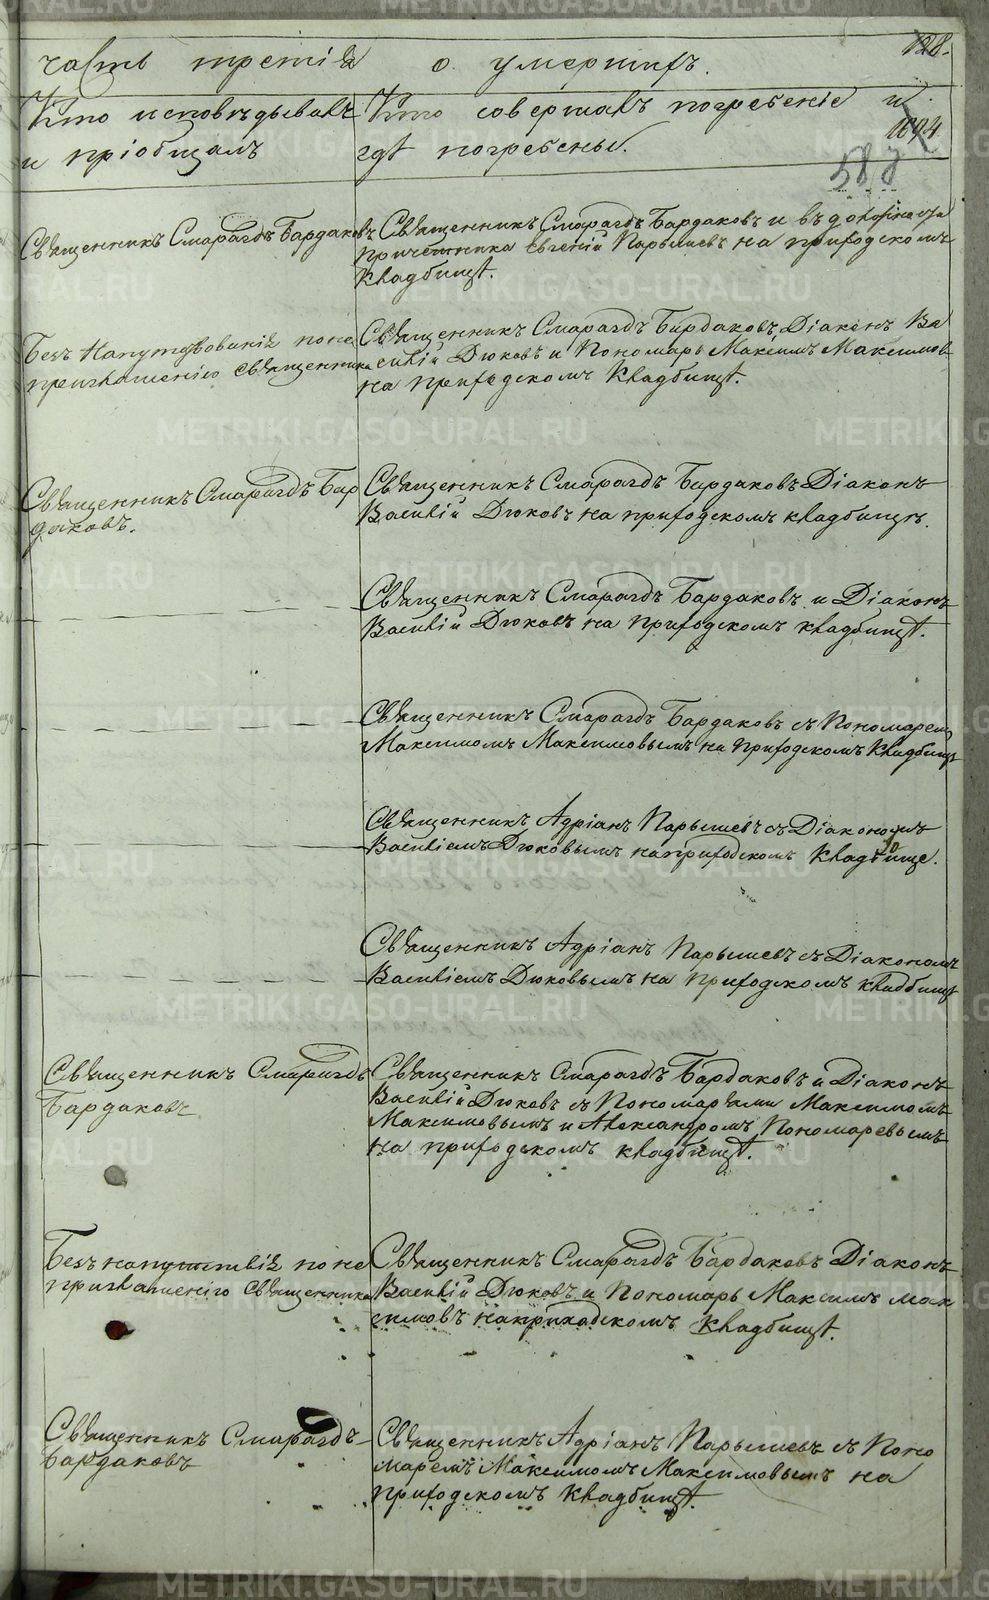 часть третія о умершихъ.
128.
Кто исповѣдывалъ
и пріобщалъ
Кто совершалъ погребеніе и
гдѣ погребены.
Священникъ Смарагдъ Бардаковъ
Священникъ Смарагдъ Бардаковъ и въ должности
причетника Евгеній Парышевъ на приходскомъ
кладбищѣ.
Безъ напутствованія по не
приглашенію священника
Священникъ Смарагдъ Бардаковъ, Діаконъ Ва
силій Дюковъ и Пономарь Максимъ Максимовъ
на приходскомъ кладбищѣ.
Священникъ Смарагдъ Бар
даковъ.
Священникъ Смарагдъ Бардаковъ Діаконъ
Василій Дюковъ на приходскомъ кладбищѣ.
Священникъ Смарагдъ Бардаковъ и Діаконъ
Василій Дюковъ на приходскомъ кладбищѣ.
Священникъ Смарагдъ Бардаковъ съ Пономаремъ
Максимомъ Максимовымъ на приходскомъ кладбищѣ
Священникъ Адріанъ Парышевъ съ Діакономъ
Василіемъ Дюковымъ на приходскомъ кладбище.
Священникъ Адріанъ Парышевъ съ Діакономъ
Василіемъ Дюковымъ на приходскомъ кладбищѣ
Священникъ Смарагдъ
Бардаковъ
Священникъ Смарагдъ Бардаковъ и Діаконъ
Василій Дюковъ съ Пономарями Максимомъ
Максимовымъ и Александромъ Пономаревымъ
на приходскомъ кладбищѣ.
Безъ напутствія по не
приглашенію священника
Священникъ Смарагдъ Бардаковъ Діаконъ
Василій Дюковъ и Пономарь Максимъ Мак
симовъ на приходскомъ кладбищѣ.
Священникъ Смарагдъ
Бардаковъ
Священникъ Адріанъ Парышевъ съ Поно
маремъ Максимомъ Максимовымъ на
приходскомъ кладбищѣ.
METRIKI.GASO-URAL.RU